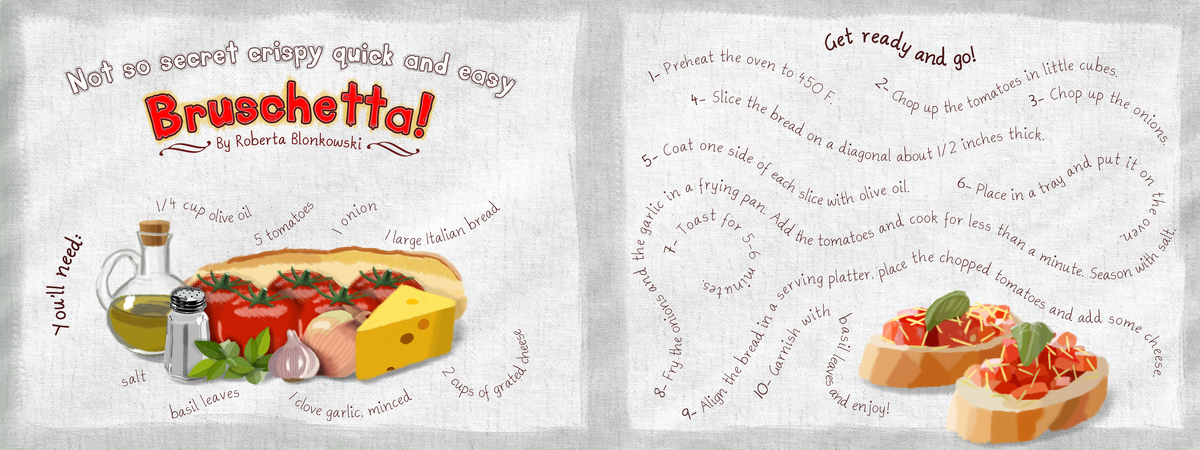 Not so secret crispy quick and easy
Bruschetta!
By Roberta Blonkowski
You'll need:
1/4 cup olive oil
5 tomatoes
1 onion
1 large Italian bread
salt
basil leaves
1 clove garlic, minced
2 cups of grated cheese
Get ready and go!
1- Preheat the oven to 450 F.
2- Chop up the tomatoes in little cubes.
3- Chop up the onions.
4- Slice the bread on a diagonal about 1/2 inches thick.
5- Coat one side of each slice with olive oil.
6- Place in a tray and put it on the oven.
7- Toast for 5_6 minutes
8- Fry the onions and the garlic in a frying pan. Add the tomatoes and cook for less than a minute. Season with salt.
9- Align the bread in a serving platter, place the chopped tomatoes and add some cheese.
10- Garnish with basil leaves and enjoy!